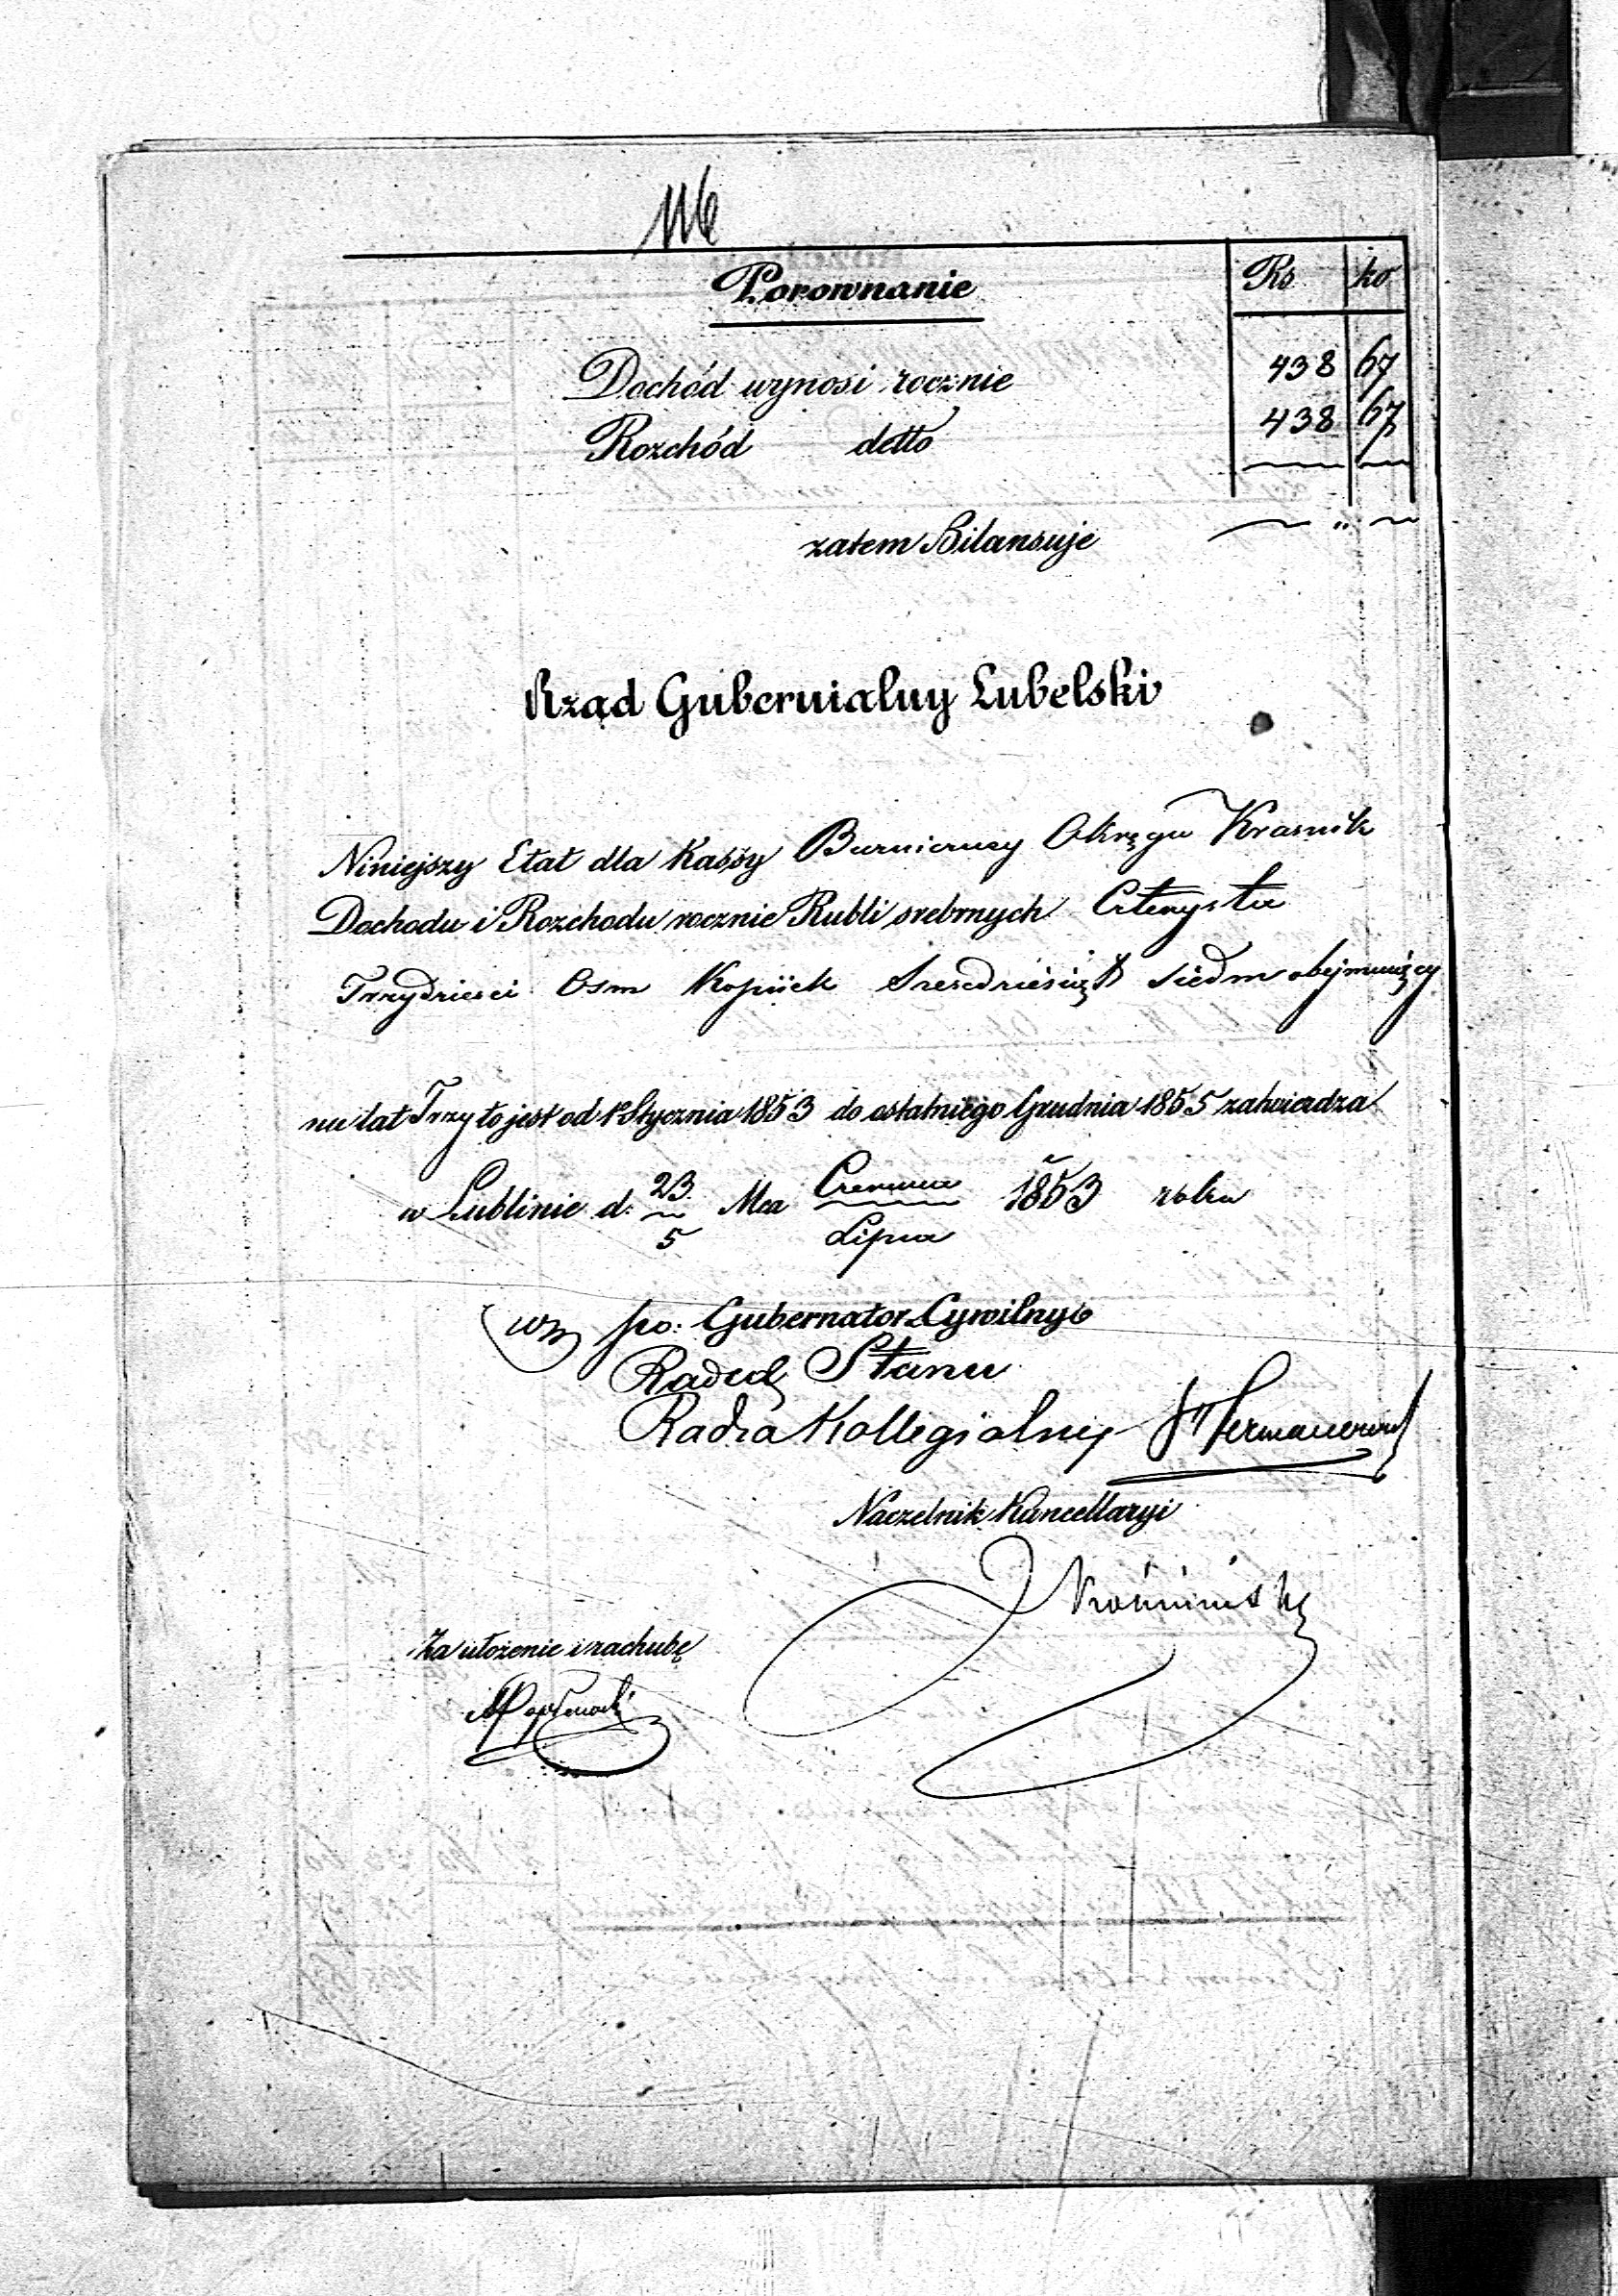 116
Porownanie
Rs ko
Dochód wynosi rocznie 438 67
Rozchód detto 438 67
zatem Bilansuje
Rząd Gubernialny Lubelski
Niniejszy Etat dla Kassy Okręgu Krasnik
Dochodu i Rozchodu rocznie Rubli srebrnych Czterysta
Trzydziesci Osm Kopiiek Szescdziesiąt Siedm obejmuiący
na lat Trzy to jest od 1o Stycznia 1853 do ostatniego Grudnia 1855 zatwierdza
w Lublinie d. 23/5 Mca Czerwca/Lipca 1853 roku
wz po: Gubernator Cywilny
Radca Stanu
Radca Kollegialny
Naczelnik Kancellaryi
Za ułożenie i rachubę